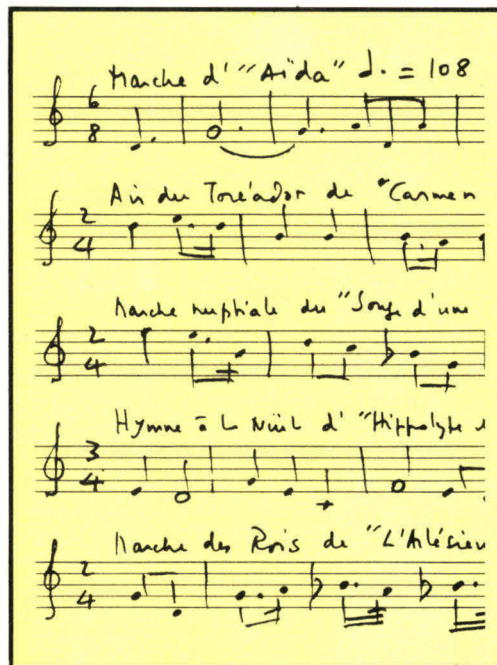 Marche d' "Aïda" 𝅗𝅥. = 108
6
8
Air du Toréador de "Carmen
2
4
Marche nuptiale du "Songe d'une
2
4
Hymne à la Nuit d' "Hippolyte
3
4
Marche des Rois de "L'Arlésien
2
4